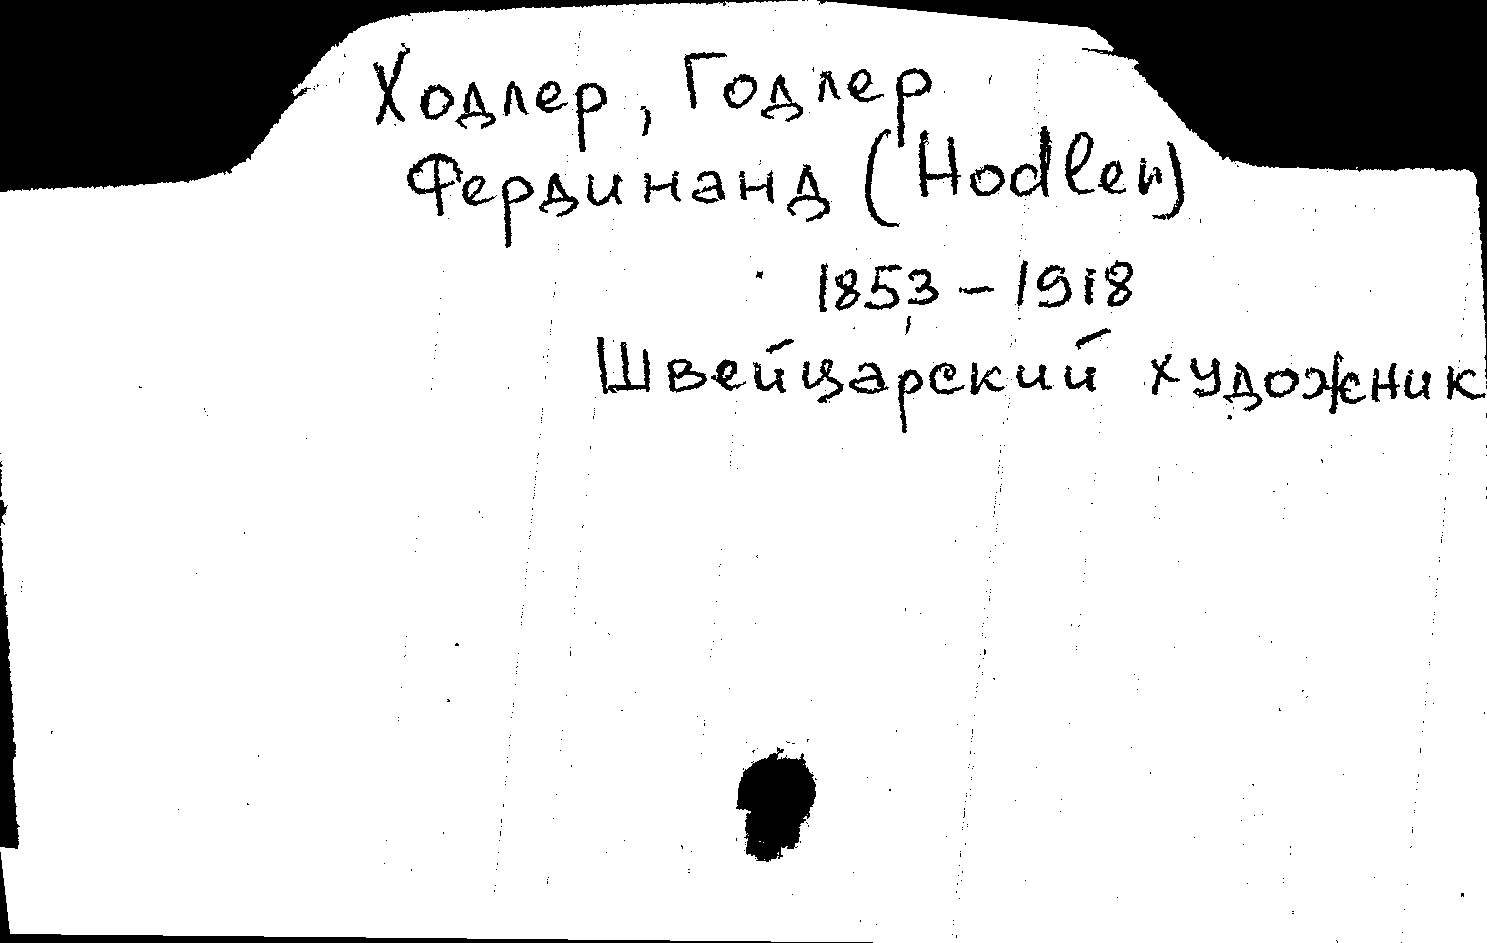 Ходлер, Годлер
Фердинанд (Hodler)
1853 – 1918
Швейцарский художник